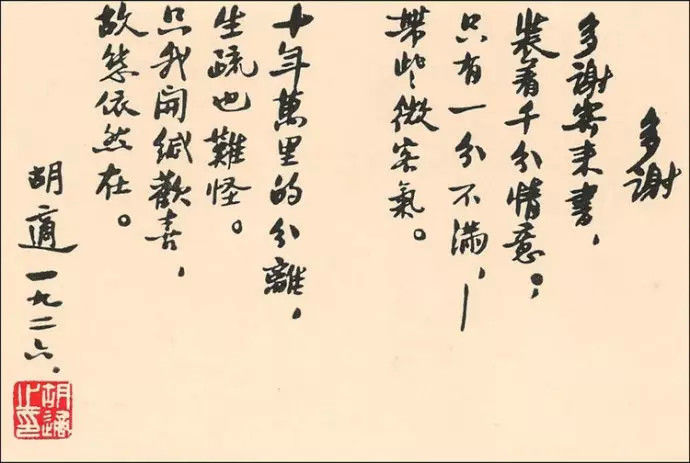 多謝
多謝寄来書，
裝着千分情意；
只有一分不滿，—
帶些微客氣。
十年萬里的分離，
生疏也難怪。
只我開緘歡喜，
故態依然在。
胡適 一九二六.
胡適之印